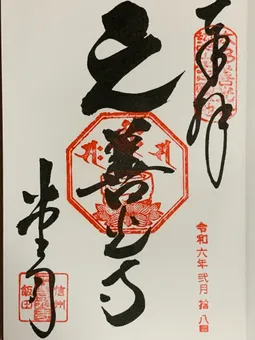 奉拝
元善光寺
令和六年弐月拾八日
信州
飯田